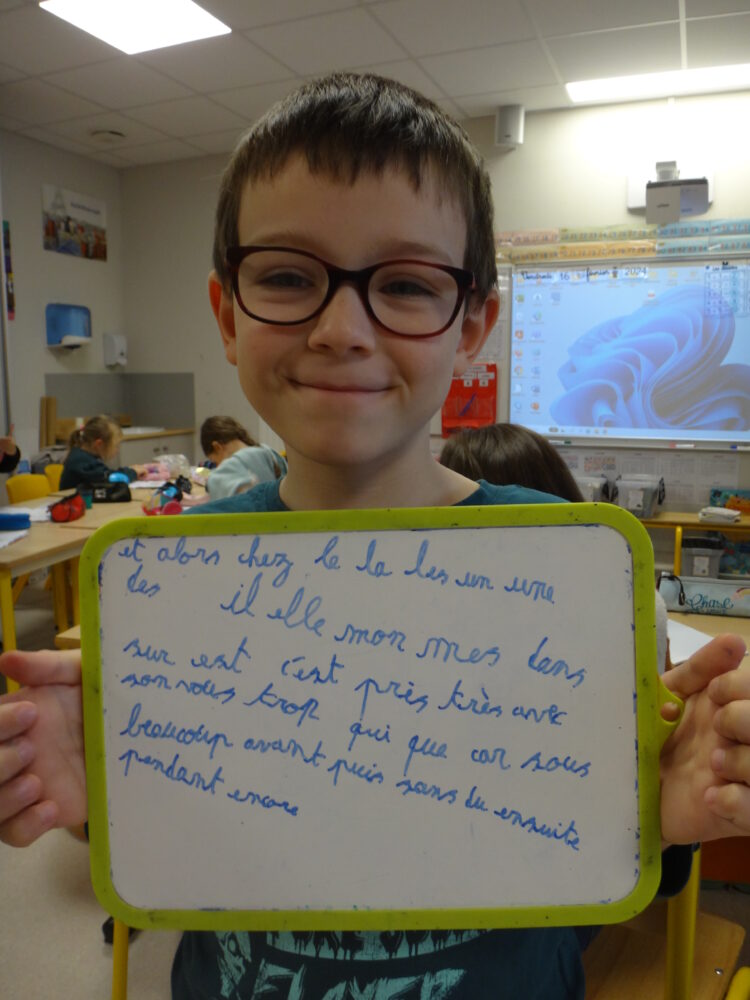 Vendredi 16 février 2024
et alors chez le la les un une
des il elle mon mes dans
sur est c'est près très avec
son vous trop qui que car sous
beaucoup avant puis sans du ensuite
pendant encore